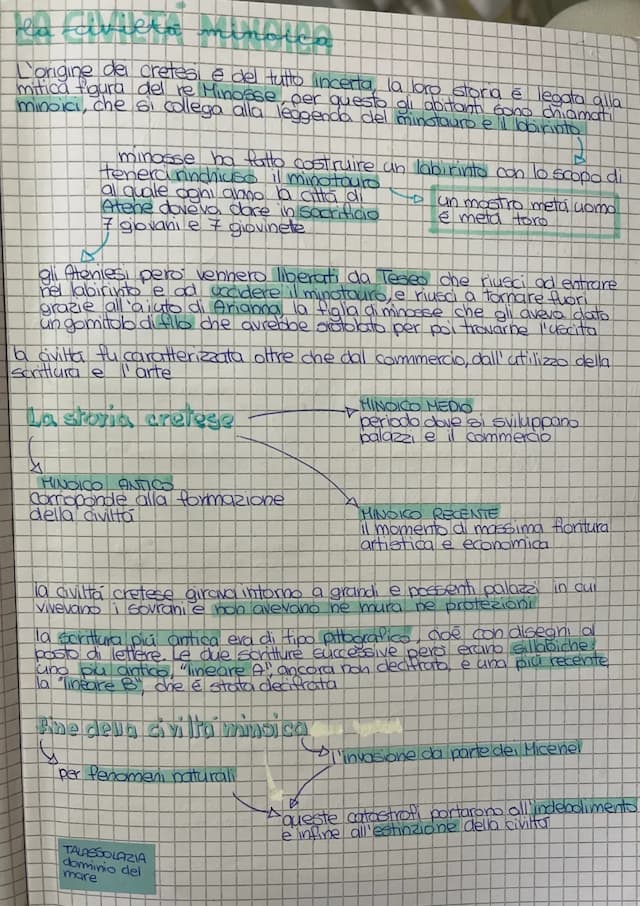 LA CIVILTÁ MINOICA
L'origine dei cretesi é del tutto incerta, la loro storia é legata alla
mitica figura del re Minosse, per questo gli abitanti sono chiamati
minoici, che si collega alla leggenda del minotauro e il labirinto
minosse ha fatto costruire un labirinto con lo scopo di
tenerci rinchiuso il minotauro
al quale ogni anno la cittá di
Atene doveva dare in sacrificio
7 giovani e 7 giovinete
un mostro metá uomo
é metá toro
gli Ateniesi peró vennero liberati da Teseo che riusci ad entrare
nel labirinto e ad uccidere il minotauro, e riusci a tornare fuori
grazie all'aiuto di Arianna la figla di minosse che gli aveva dato
un gomitolo di filo che avrebbe srotolato per poi trovarne l'uscita
la civiltá fu caratterizzata oltre che dal commercio, dall'utilizzo della
scrittura e l'arte
La storia cretese
MINOICO MEDIO
periodo dove si sviluppano
palazzi e il commercio
MINOICO ANTICO
corroponde alla formazione
della civiltá
MINOICO RECENTE
il momento di massima fioritura
artistica e economica
la civiltá cretese girava intorno a grandi e possenti palazzi in cui
vivevano i sovrani e non avevano ne mura ne protezioni
la scrittura piú antica era di tipo pittografico, cioé con disegni al
posto di lettere. Le due scritture successive peró erano sillabiche:
uno piu antico, "lineare A", ancora non decifrato, e una piú recente
la "lineare B", che é stata decifrata
Fine della civiltá minoica
l'invasione da parte dei Micenei
per fenomeni naturali
queste catastrofi portarono all'indebolimento
e infine all'estinzione della civiltá
TALASSOLAZIA
dominio del
mare